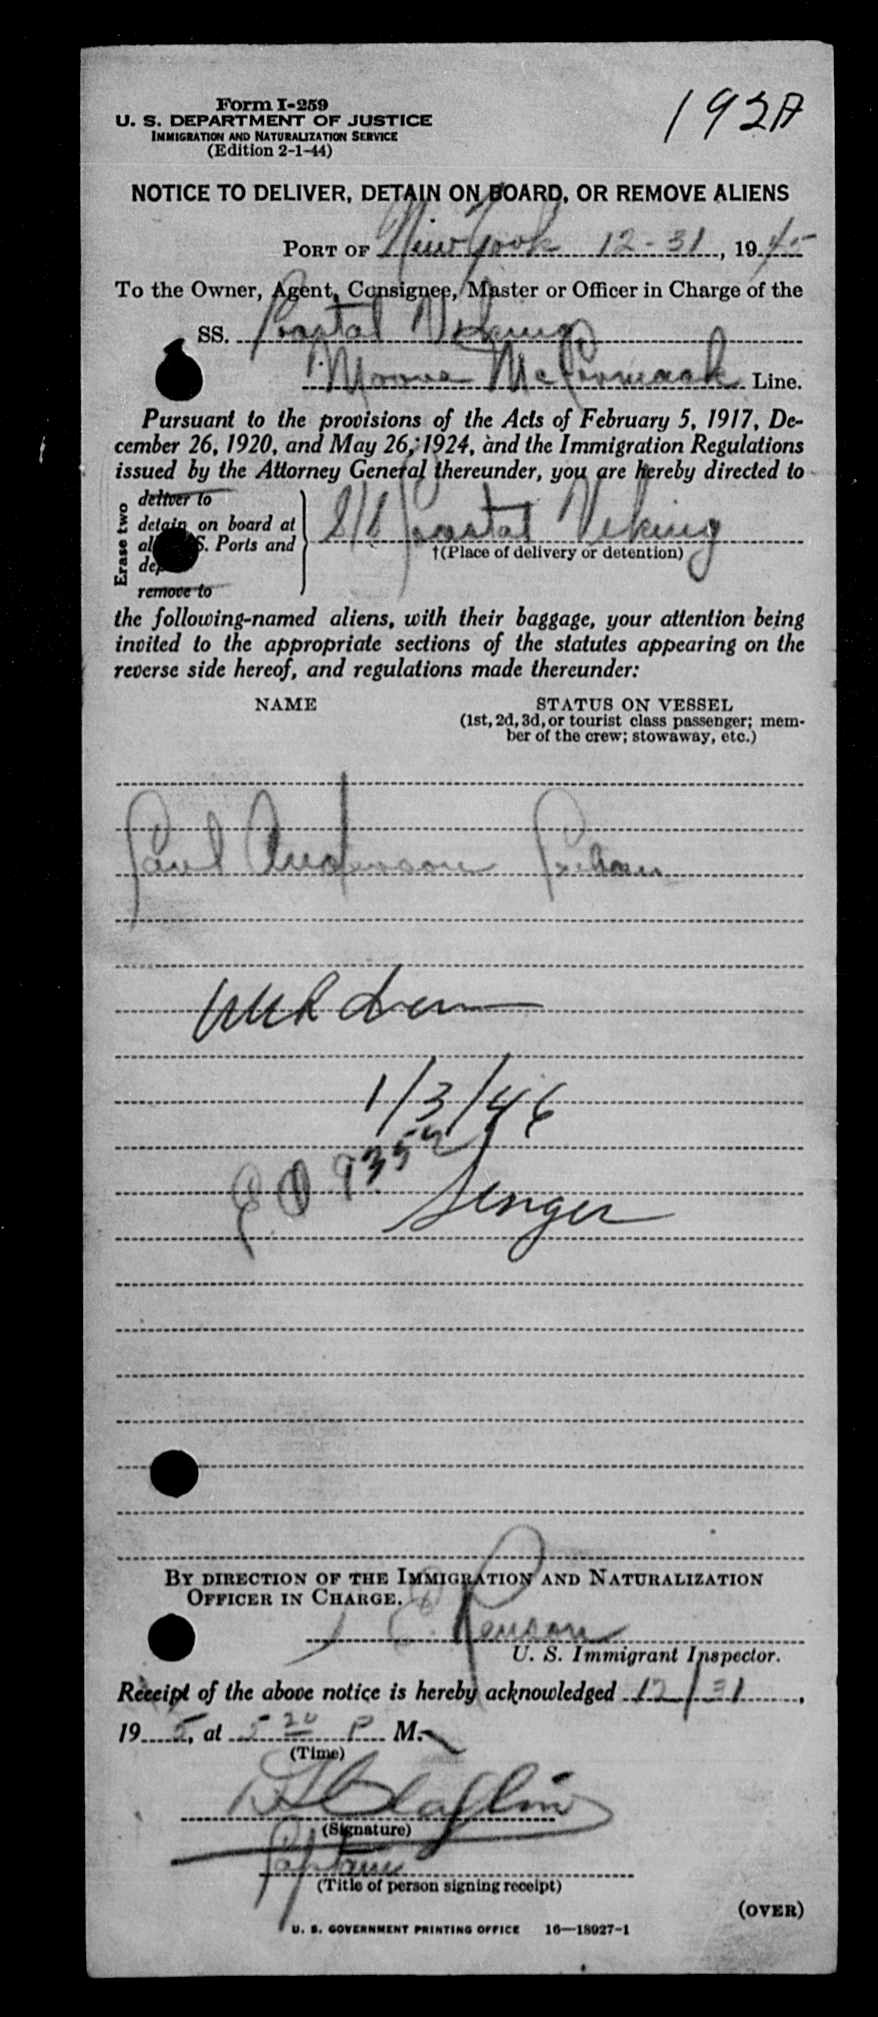 Form I-259
U. S. DEPARTMENT OF JUSTICE
IMMIGRATION AND NATURALIZATION SERVICE
(Edition 2-1-44)
192A
NOTICE TO DELIVER, DETAIN ON BOARD, OR REMOVE ALIENS
PORT OF New York 12-31, 1945
To the Owner, Agent, Consignee, Master or Officer in Charge of the
SS. Coastal Viking
Moore McCormack Line.
Pursuant to the provisions of the Acts of February 5, 1917, De-
cember 26, 1920, and May 26, 1924, and the Immigration Regulations
issued by the Attorney General thereunder, you are hereby directed to
Erase two
deliver to
detain on board at
S. Ports and
remove to
S/S Coastal Viking
†(Place of delivery or detention)
the following-named aliens, with their baggage, your attention being
invited to the appropriate sections of the statutes appearing on the
reverse side hereof, and regulations made thereunder:
NAME STATUS ON VESSEL
(1st, 2d, 3d, or tourist class passenger; mem-
ber of the crew; stowaway, etc.)
Paul Anderson
1/3/46
9352
Singer
BY DIRECTION OF THE IMMIGRATION AND NATURALIZATION
OFFICER IN CHARGE.
E. Renson
U. S. Immigrant Inspector.
Receipt of the above notice is hereby acknowledged 12/31,
19 5, at 5 20 P M.
(Time)
Claflin
(Signature)
Captain
(Title of person signing receipt)
(OVER)
U. S. GOVERNMENT PRINTING OFFICE 16—18027-1